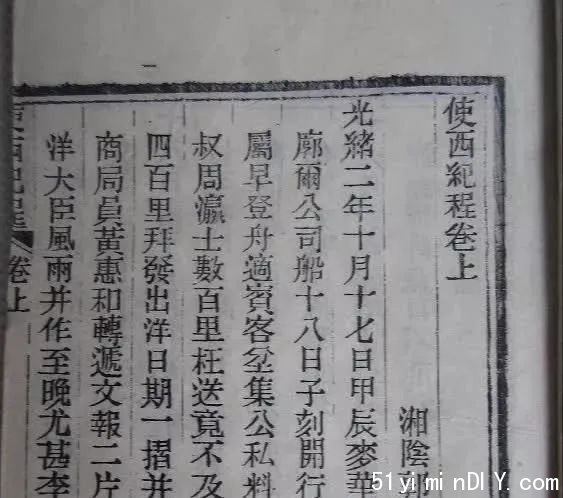 使西紀程卷上
湘陰郭
光緒二年十月十七日甲辰麥華
廓爾公司船十八日子刻開行
屬早登舟適賓客坌集公私料
叔周瀛士數百里枉送竟不及
四百里拜發出洋日期一摺并
商局員黃惠和轉遞文報二片
洋大臣風雨并作至晚尤甚李
使西紀程 卷上
51yiminDIY.com